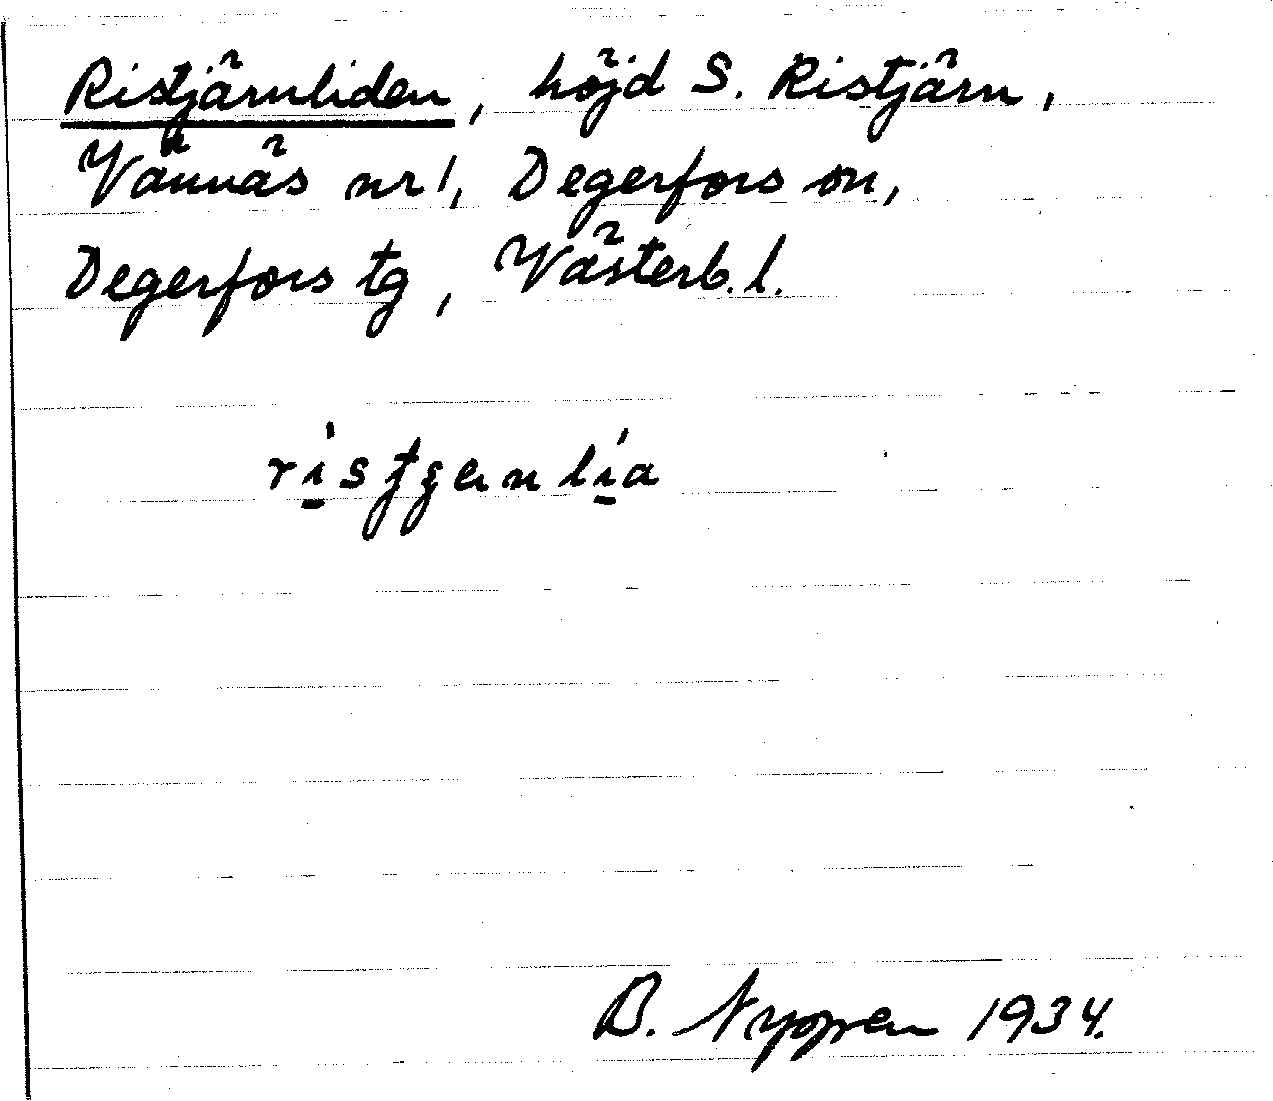 Ristjärnliden, höjd S. Ristjärn,
Vännäs nr 1, Degerfors sn,
Degerfors tg, Västerb. l.
B. Nyppen 1934.